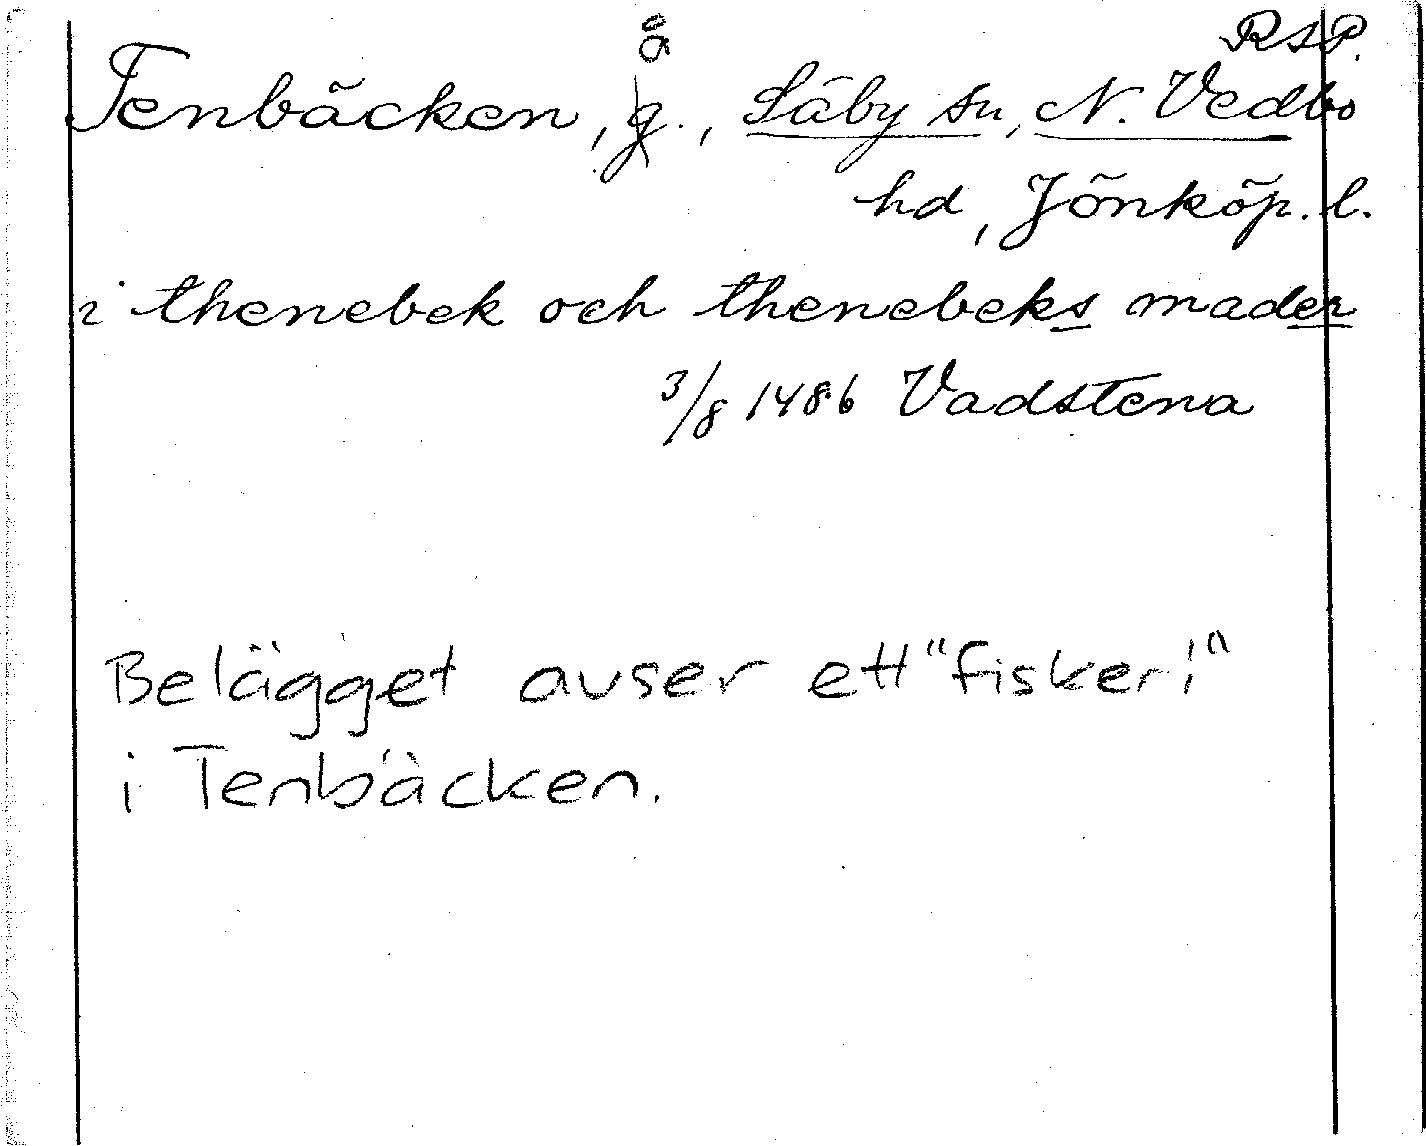 RSP.
å
Tenbäcken, g., Säby sn, N. Vedbo
hd, Jönköp. l.
i thenebek och thenebeks mader
3/8 1486 Vadstena
Belägget avser ett "fiskeri"
i Tenbäcken.